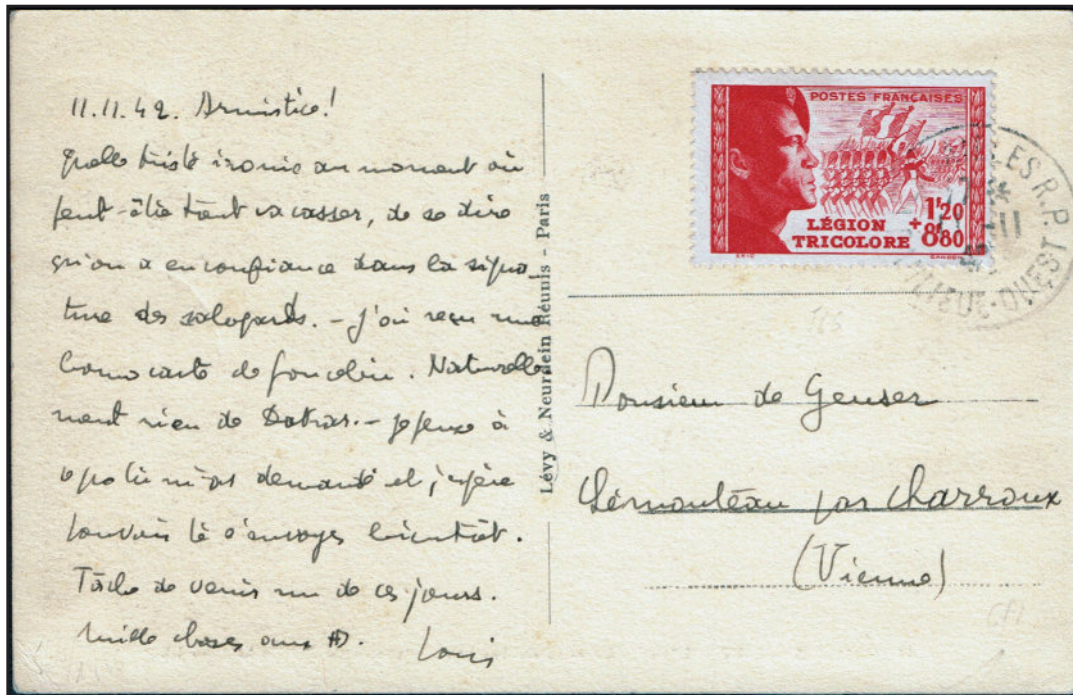 11.11.42. Armistice!
Quelle triste ironie au moment où
peut-être tout va casser, de se dire
qu'on a eu confiance dans la signa-
ture des salopards. - J'ai reçu une
bonne carte de
Naturelle-
ment rien de - Je pense à
ce que tu m'as demandé et j'espère
pouvoir te l'envoyer bientôt.
Tâche de venir un de ces jours.
Mille choses aux
Louis
Lévy & Neurdein Réunis - Paris
POSTES FRANÇAISES
LÉGION
TRICOLORE
1f20
+8f80
ERIC
GANDON
R.P.
11
OUEST
Monsieur de Geuser
par Charroux
(Vienne)